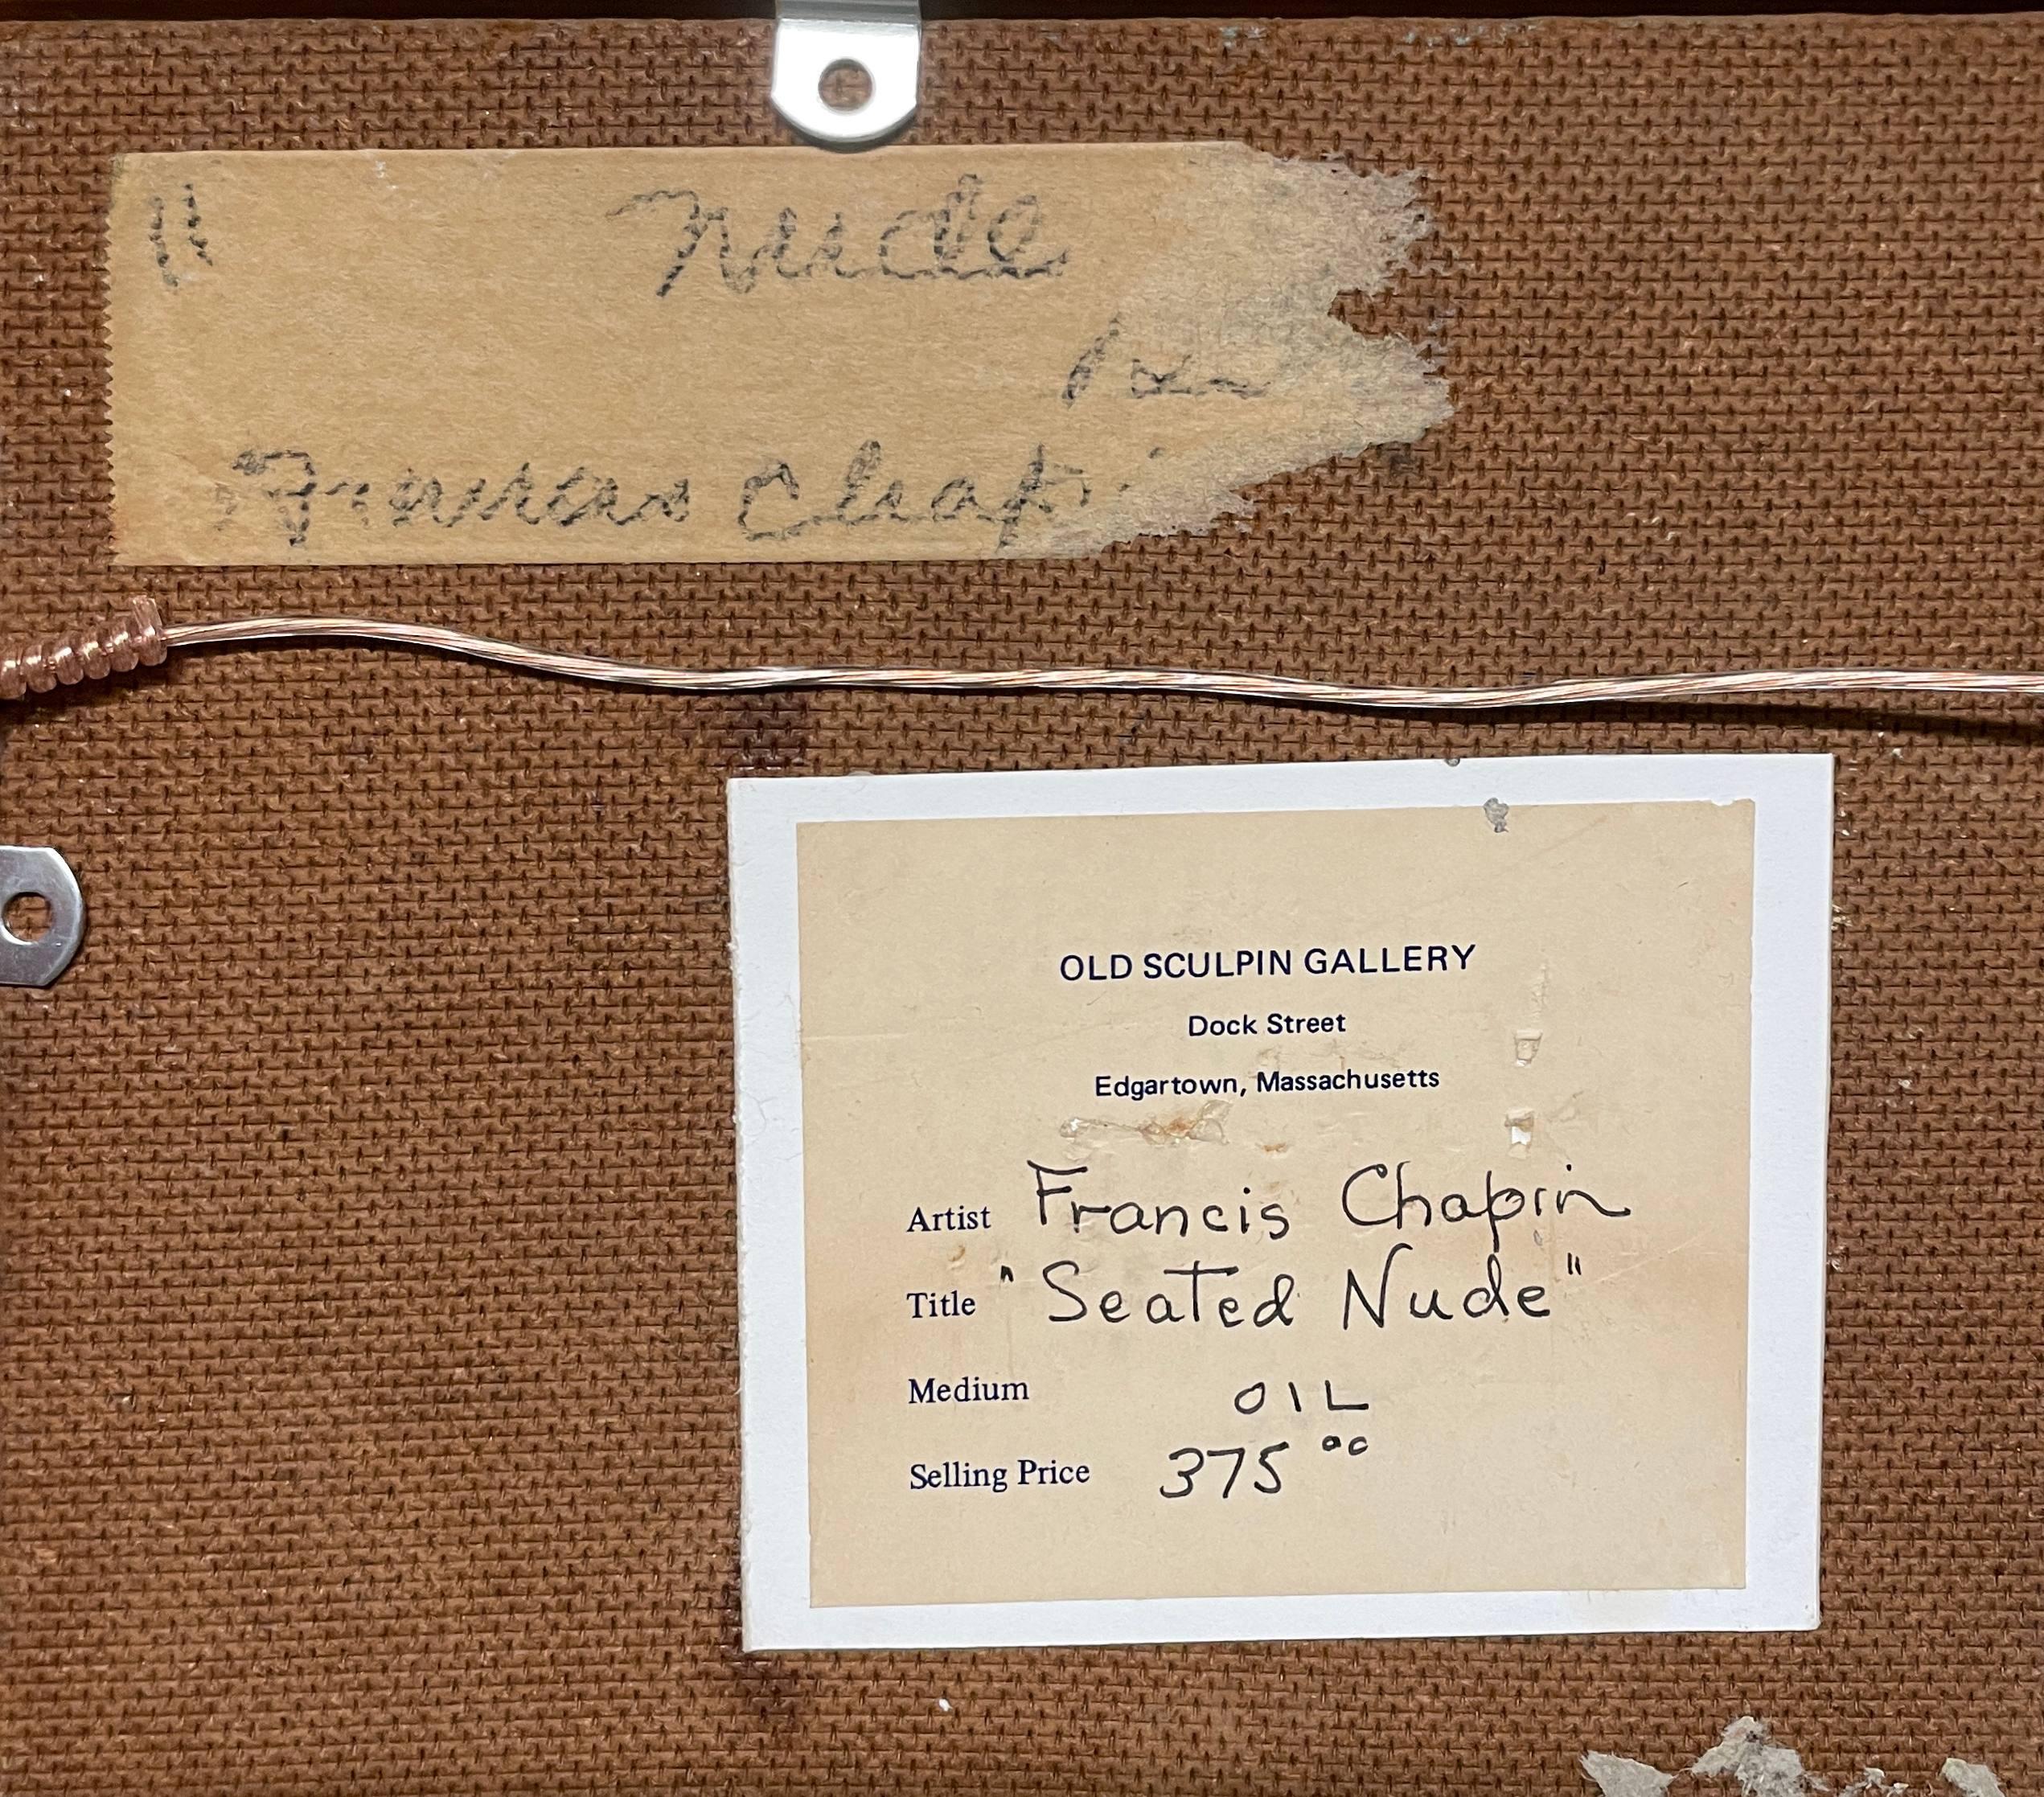 " Nude
Francis Chapi
OLD SCULPIN GALLERY
Dock Street
Edgartown, Massachusetts
Artist Francis Chapin
Title "Seated Nude"
Medium OIL
Selling Price 375 00